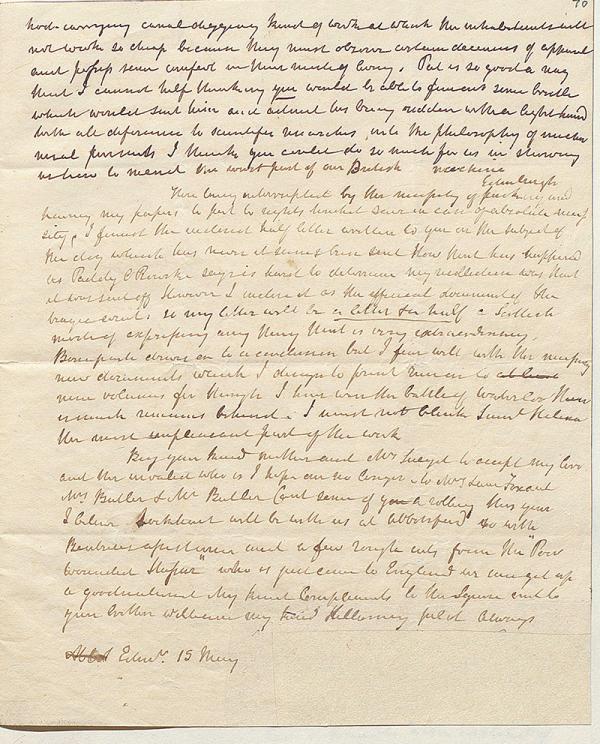 70
hod-carrying canal digging kind of work at which the inhabitants will
not work so cheap because they must observe certain decencies of apparel
and perhaps some comfort in their mode of living. Pat is so good a nag
that I cannot help thinking you would be able to
which would suit him and admit his being ridden with a light hand
With all deference to scientific researches, into the philosophy of
I think you could do so much for us in showing
us how to mend the worst part of our British machine
Edinburgh
Here being interrupted by the necessity of packing and
having my papers to put to rights
sity, I found the inclosed half letter written to you on the subject of
the clay which has never it seems been sent How that has happened
as Paddy O Rourke says is hard to determine my recollection was that
it was sent off However I inclose it as the official document of the
so my letter will be a letter & a half a Scottish
mode of expressing any thing that is very extraordinary.
Bonaparte draws on to a conclusion but I fear will with the necessary
new documents which I design to print run in to
nine volumes for though I have won the battle of Waterloo there
is much remains behind & I must not blink Saint Helena
the most unpleasant part of the work
Beg your kind mother and Mrs to accept my love
and the invalid who is I hope an no longer to Mrs
Mrs Butler & Mr Butler Cant some of you a rolling this year
I believe Lockhart will be with us at abbotsford so with
and a few rough cuts from the "Poor
wounded Hussar" who is just come to England we can get up
a good My kind Compliments to the Squire and to
your brother William my kind Killarney pilot Always
Edinr. 15 May